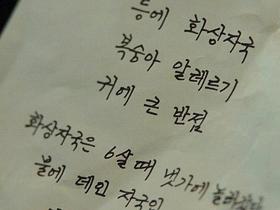 등에 화상자국
복숭아 알레르기
귀에 큰 반점
화상자국은 6살 때 냇가에 놀러갔다
불에 데인 자국인